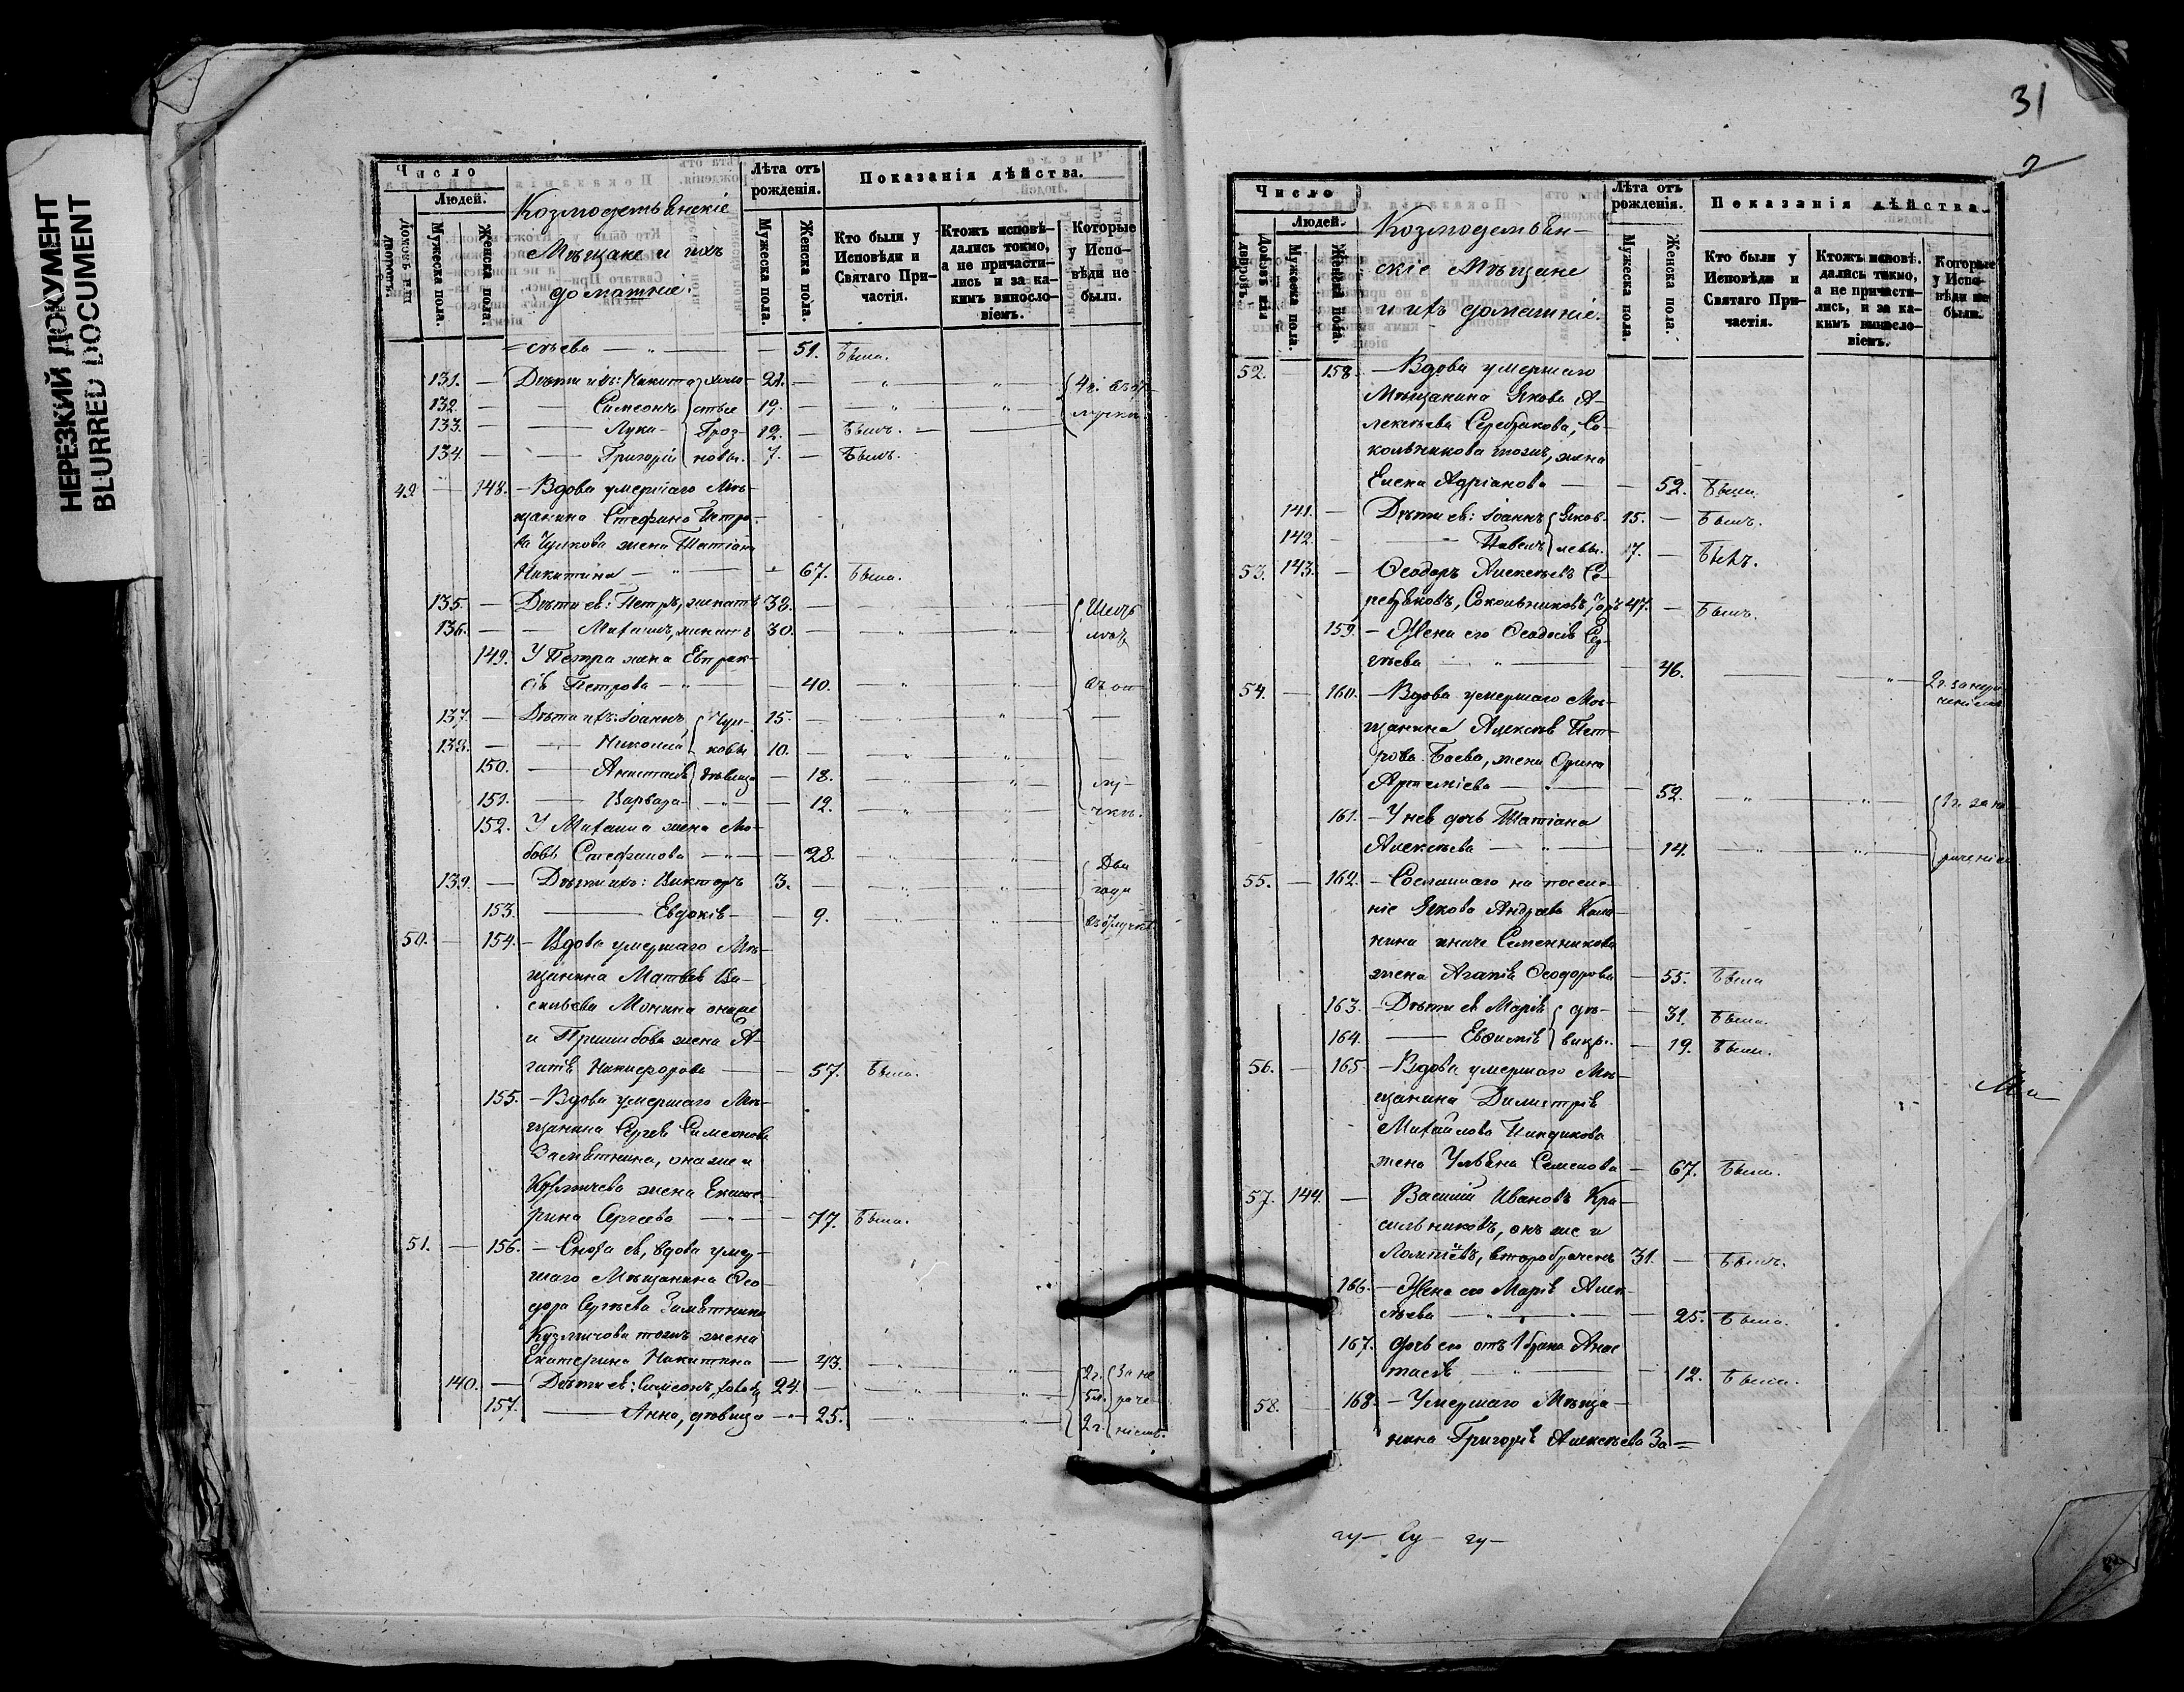 НЕРЕЗКИЙ ДОКУМЕНТ
BLURRED DOCUMENT
Число
Людей.
Домовъ или дворовъ.
Мужеска пола.
Женска пола.
Козмодемьянскіе
Мѣщане и ихъ
домашніе.
Лѣта отъ рожденія.
Мужеска пола.
Женска пола.
Показанія дѣйства.
Кто были у Исповѣди и Святаго Причастія.
Ктожъ исповѣдались токмо, а не причастились и за какимъ винословіемъ.
Которые у Исповѣди не были.
=сѣева — „ — — 51. Была.
131. — Дѣти ихъ: Никита холо- 21. —
132. — Симеонъ стые 19. —
133. — Лука Гроз- 12. — Былъ.
134. — Григорій новы. 7. — Былъ.
49. — 148. — Вдова умершаго Мѣ-
щанина Стефана Петро-
ва Чулкова жена Татіана
Никитина — „ — 67. Была.
135. — Дѣти ея: Петръ, женатъ 38. —
136. — Михаилъ, женатъ 30. —
149. У Петра жена Евпрак-
сія Петрова — „ — 40.
137. — Дѣти ихъ: Іоаннъ Чул- 15. —
138. — Николай ковы 10. —
150. — Анастасія дѣвица — 18.
151. — Варвара — „ — 12.
лу-
чкѣ.
152. У Михаила жена Лю-
бовь Стефанова — „ — 28.
139. — Дѣти ихъ: Викторъ 3. —
Два
года
153. — Евдокія — 9.
50. — 154. — Вдова умершаго Мѣ-
щанина Матвѣя Ва-
сильева Монина онаже
и Пришибова жена А-
гапія Никифорова — 57. Была.
155. — Вдова умершаго Мѣ-
щанина Сергѣя Симеонова
Замятнина, она же и
Кузмичева жена Екате-
рина Сергеева — „ — 77. Была.
51. — 156. — Сноха ея, вдова умер-
шаго Мѣщанина Ѳео-
дора Сергѣева Замятнина
Кузмичова тожъ жена
Екатерина Никитина — 43.
140. — Дѣти ея: Симеонъ, 24. —
157. — Анна, дѣвица — 25.
2 г. За не
5 л. раче
2 г. ніемъ.
31
2
Число
Людей.
Домовъ или дворовъ.
Мужеска пола.
Женска пола.
Козмодемьян-
скіе Мѣщане
и ихъ домашніе.
Лѣта отъ рожденія.
Мужеска пола.
Женска пола.
Показанія дѣйства.
Кто были у Исповѣди и Святаго Причастія.
Ктожъ исповѣдались токмо, а не причастились, и за какимъ винословіемъ.
Которые у Исповѣди не были.
52. 158. — Вдова умершаго
Мѣщанина Якова А-
лексѣева Серебрякова, Со-
кольникова тожъ, жена
Елена Адріанова — — 52. Была.
141. — Дѣти ея: Іоаннъ Яков- 15. — Былъ.
142. — Павелъ левы. 17. — Былъ.
53. 143. — Ѳеодоръ Алексѣевъ Се-
ребряковъ, Сокольниковъ 47. — Былъ.
159. — Жена его Ѳеодосія Сер-
гѣева — „ — 46.
54. — 160. — Вдова умершаго Мѣ-
щанина Алексѣя Пет-
рова Боева, жена Орина
Артеміева — 52.
161. — У нея дочь Татіана
Алексѣева — „ — 14.
55. — 162. — Сосланнаго на поселе-
ніе Якова Андреева Кала-
нина иначе Семенникова
жена Агапія Ѳеодорова — 55. Была
163. — Дѣти ея Марія дѣ- — 31. Была.
164. — Евѳимія вицы. — 19. Была.
56. — 165 — Вдова умершаго Мѣ-
щанина Димитрія
Михайлова Пиндикова
жена Ульяна Семенова — 67. Была.
57. 144. — Василій Ивановъ Кра-
сильниковъ, онъ же и
Ломтевъ, второбраченъ 31. — Былъ.
166. — Жена его Марія Алек-
сѣева — 25. Была.
167. Дочь его отъ 1 брака Анас
тасія — 12. Была.
58. — 168. — Умершаго Мѣща-
нина Григорія Алексѣева За=